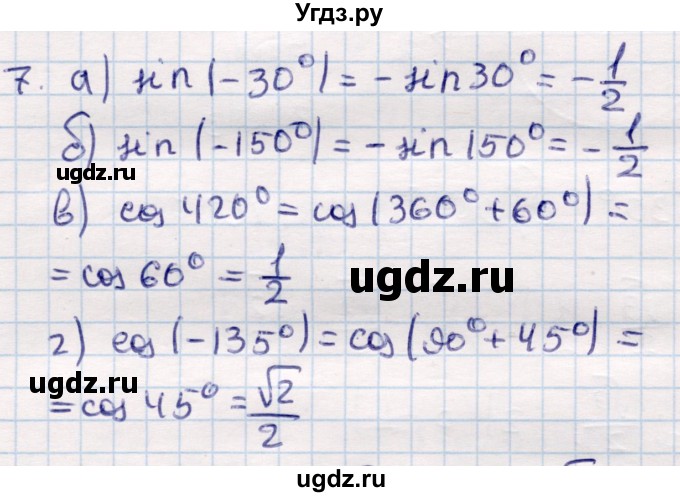 Угдз.ру
7. а) sin (-30°) = - sin 30° = - 1/2
б) sin (-150°) = - sin 150° = - 1/2
ugdz.ru
в) cos 420° = cos (360° + 60°) =
= cos 60° = 1/2
ugdz.ru
г) cos (-135°) = cos (90° + 45°) =
ugdz.ru
= cos 45° = √2/2
ugdz.ru